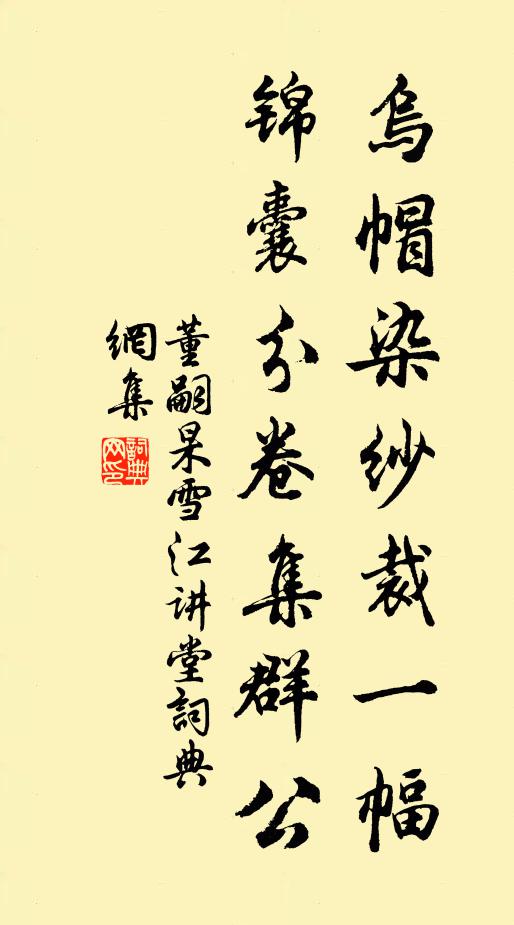 乌帽染纱裁一幅
锦囊分卷集群公
董嗣杲雪江讲堂詞典
網集
詞典
网印